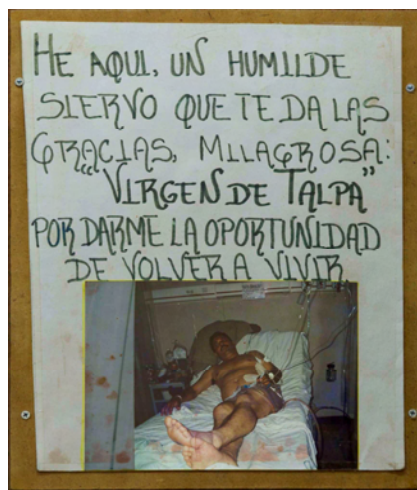 HE AQUI, UN HUMILDE
SIERVO QUE TE DA LAS
GRACIAS, MILAGROSA:
"VIRGEN DE TALPA"
POR DARME LA OPORTUNIDAD
DE VOLVER A VIVIR